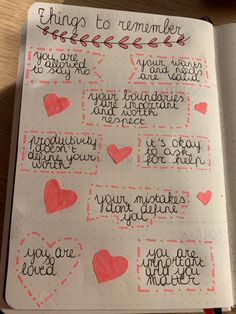 Things to remember
you are
allowed to
say no
your wants
and needs
are valid
your boundaries
are important
and worth
respect
productivity
doesn't
define your
worth
it's okay
to ask
for help
your mistakes
don't define
you
you are
so
loved
you are
important
and you
matter